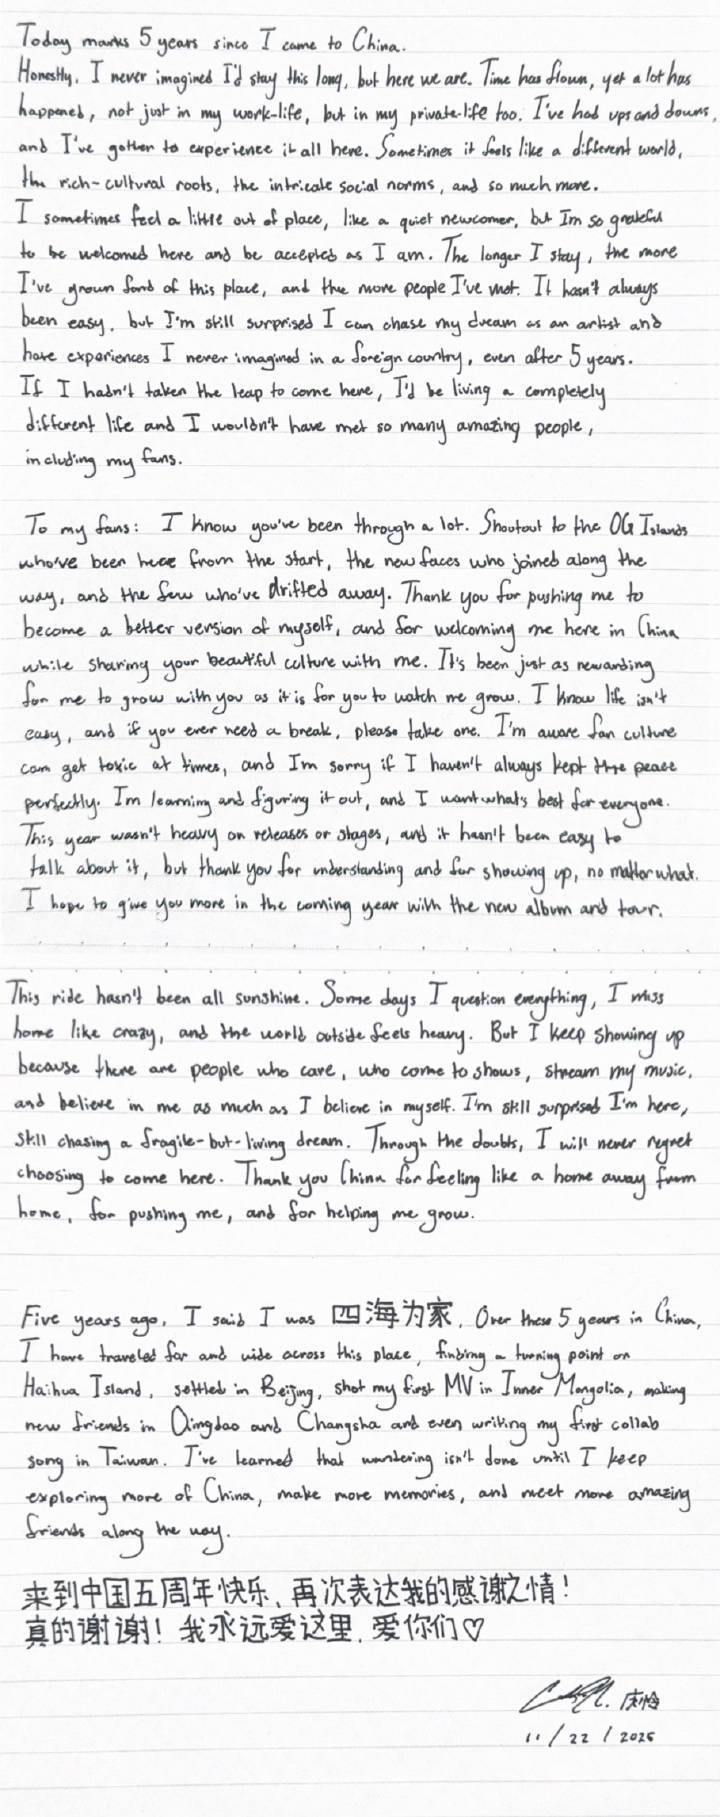 Today marks 5 years since I came to China.
Honestly, I never imagined I'd stay this long, but here we are. Time has flown, yet a lot has
happened, not just in my work-life, but in my private-life too. I've had ups and downs,
and I've gotten to experience it all here. Sometimes it feels like a different world,
the rich-cultural roots, the intricate social norms, and so much more.
I sometimes feel a little out of place, like a quiet newcomer, but I'm so grateful
to be welcomed here and be accepted as I am. The longer I stay, the more
I've grown fond of this place, and the more people I've met. It hasn't always
been easy, but I'm still surprised I can chase my dream as an artist and
have experiences I never imagined in a foreign country, even after 5 years.
If I hadn't taken the leap to come here, I'd be living a completely
different life and I wouldn't have met so many amazing people,
including my fans.
To my fans: I know you've been through a lot. Shoutout to the OG Islands
who've been here from the start, the new faces who joined along the
way, and the few who've drifted away. Thank you for pushing me to
become a better version of myself, and for welcoming me here in China
while sharing your beautiful culture with me. It's been just as rewarding
for me to grow with you as it is for you to watch me grow. I know life isn't
easy, and if you ever need a break, please take one. I'm aware fan culture
can get toxic at times, and I'm sorry if I haven't always kept the peace
perfectly. I'm learning and figuring it out, and I want what's best for everyone.
This year wasn't heavy on releases or stages, and it hasn't been easy to
talk about it, but thank you for understanding and for showing up, no matter what.
I hope to give you more in the coming year with the new album and tour.
This ride hasn't been all sunshine. Some days I question everything, I miss
home like crazy, and the world outside feels heavy. But I keep showing up
because there are people who care, who come to shows, stream my music,
and believe in me as much as I believe in myself. I'm still surprised I'm here,
still chasing a fragile-but-living dream. Through the doubts, I will never regret
choosing to come here. Thank you China for feeling like a home away from
home, for pushing me, and for helping me grow.
Five years ago, I said I was 四海为家. Over these 5 years in China,
I have traveled far and wide across this place, finding a turning point on
Haihua Island, settled in Beijing, shot my first MV in Inner Mongolia, making
new friends in Qingdao and Changsha and even writing my first collab
song in Taiwan. I've learned that wandering isn't done until I keep
exploring more of China, make more memories, and meet more amazing
friends along the way.
来到中国五周年快乐、再次表达我的感谢之情!
真的谢谢! 我永远爱这里, 爱你们♡
11/22/2025